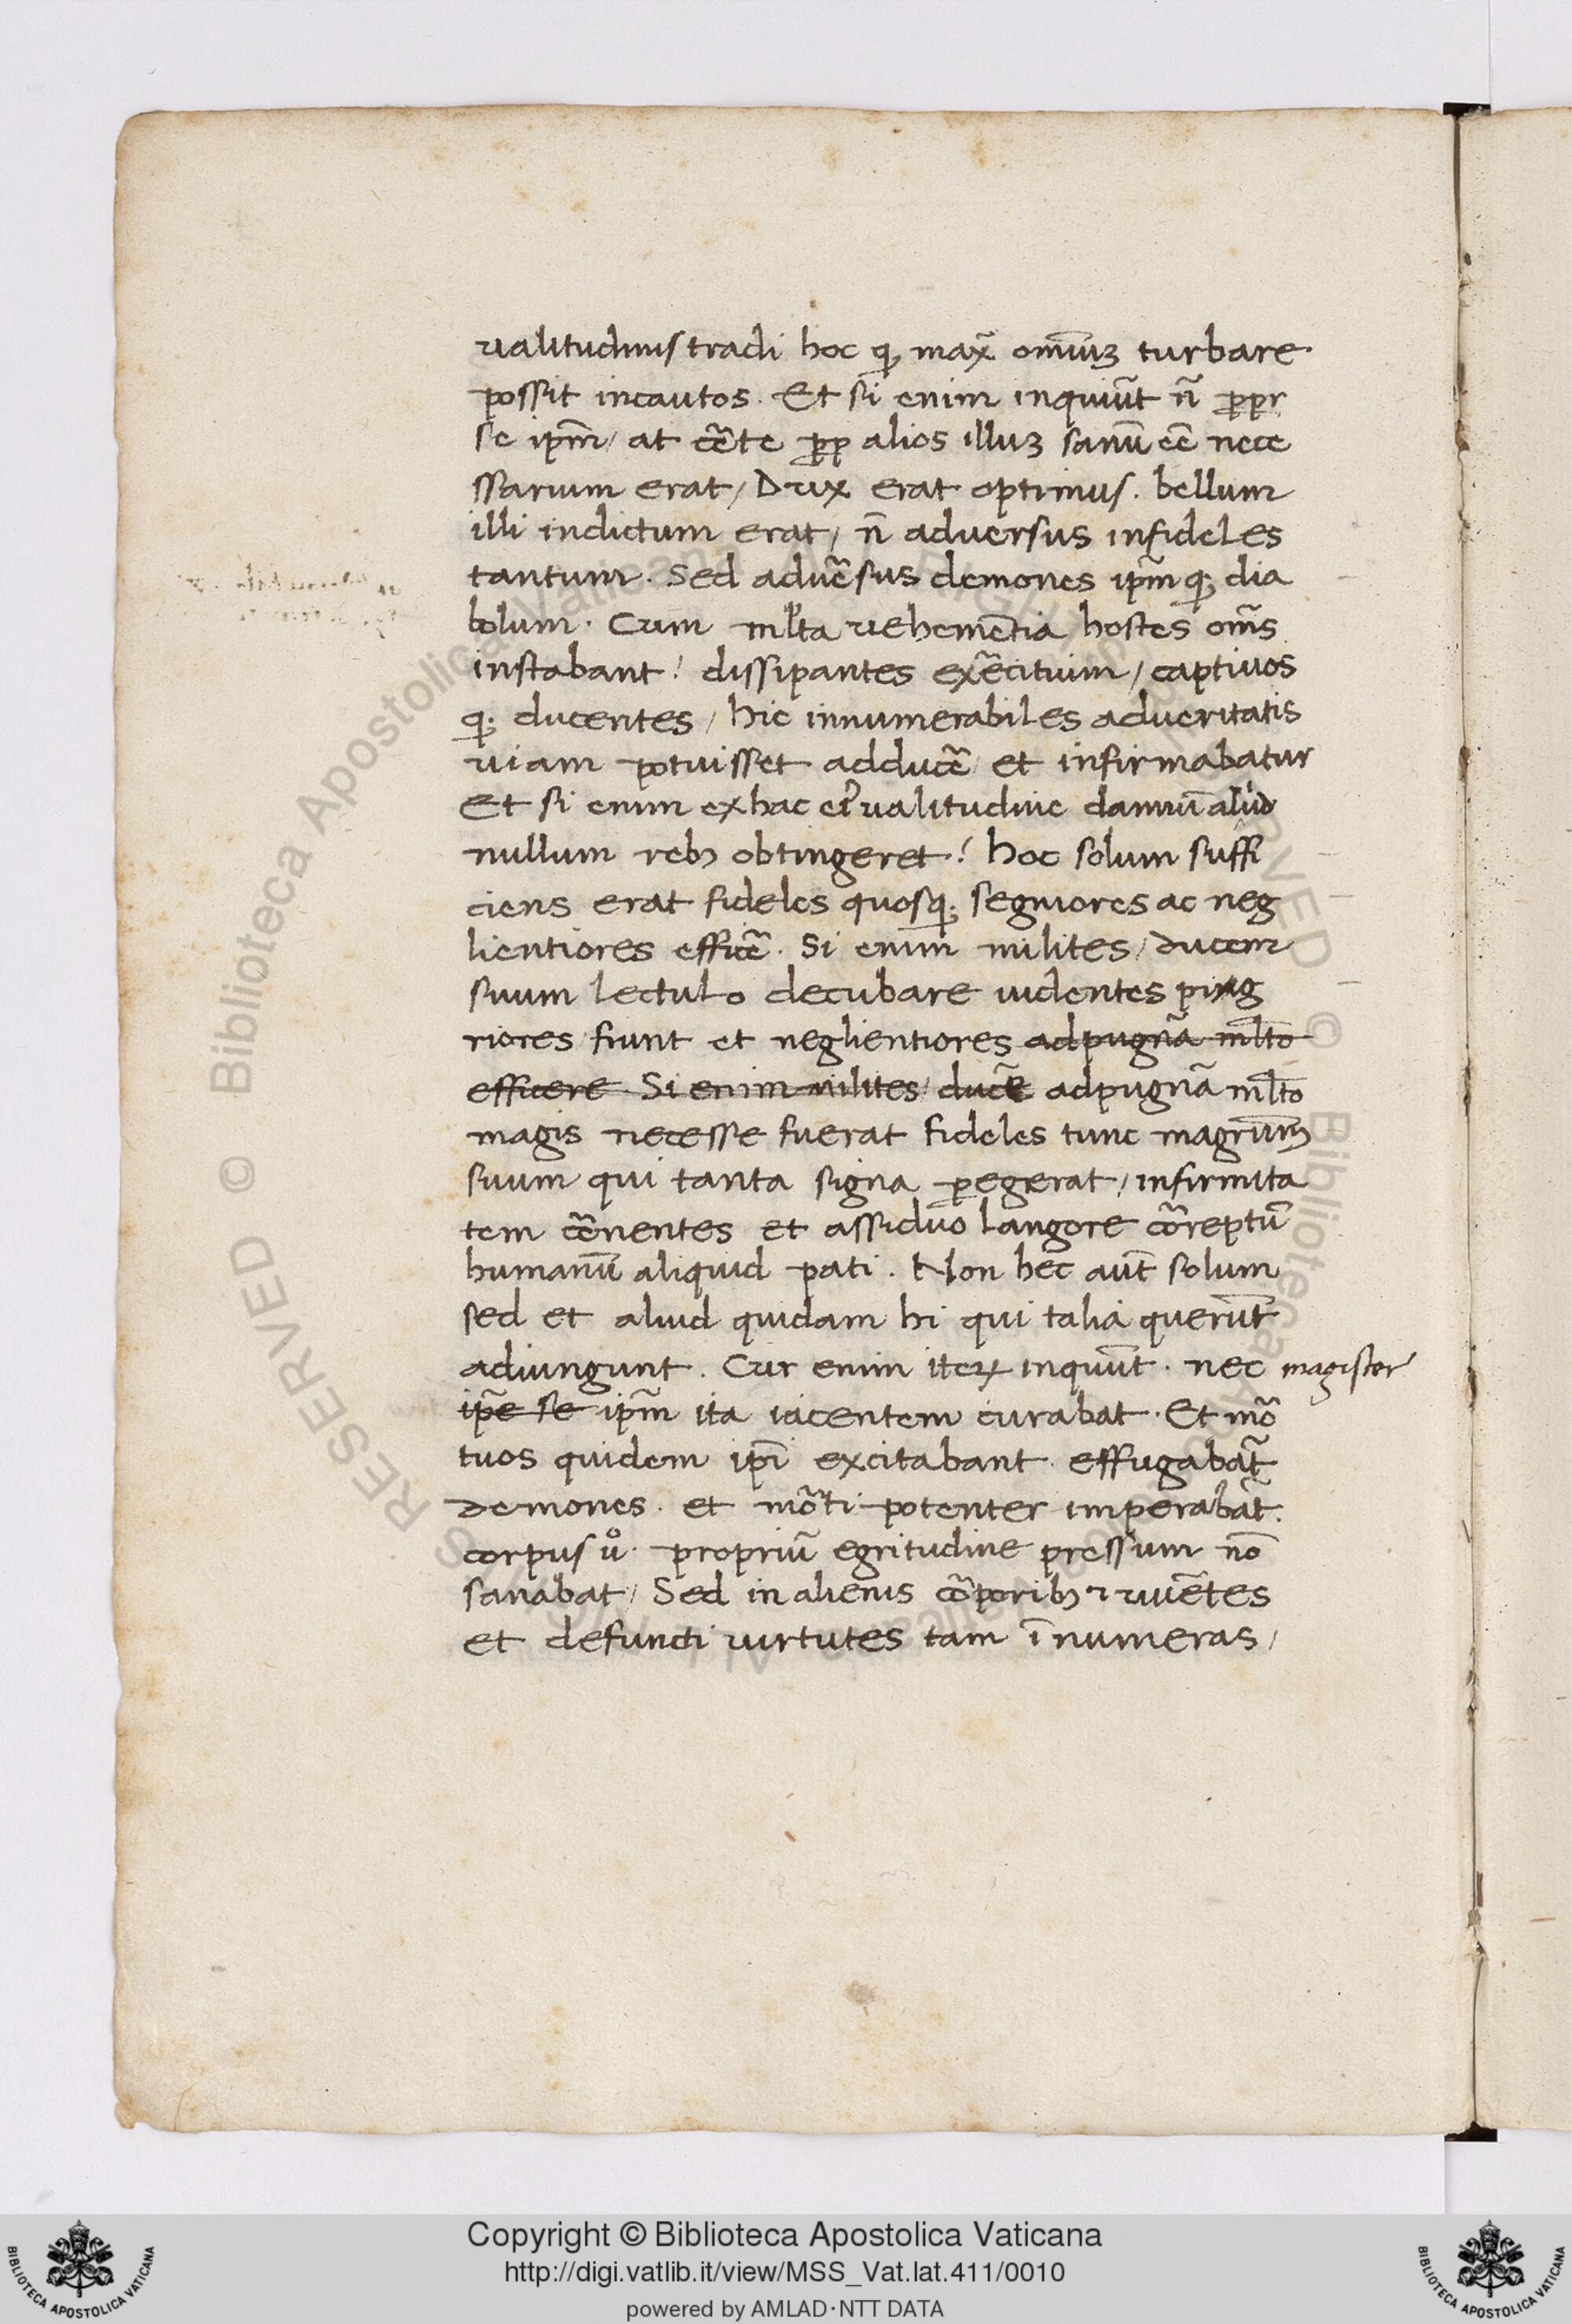 ualitudinis tradi hoc q; max̃ omniuȝ turbare
possit incautos. Et si enim inquiũt ñ propr
se ipm̃/ at cẽte prop alios illuȝ sanũ eẽ nece
ssarium erat/ Dux erat optimus. bellum
illi indictum erat/ ñ aduersus infideles
tantum. Sed aduẽsus demones ipm̃q; dia
bolum. Cum ml'ta uehemẽtia hostes om̃s
instabant! dissipantes exẽcituim/ captiuos
q; ducentes/ hic innumerabiles adueritatis
uiam potuisset adducẽ/ et infirmabatur
Et si enim ex hac eĩ ualitudine damnũ aliud
nullum reb; obtingeret! hoc solum suffi
ciens erat fideles quosq; segniores ac neg
lientiores efficẽ. Si enim milites/ ducem
suum lectulo decubare uidentes ping
riores fiunt et neglientiores adpugnã ml̃to
efficere. Si enim milites/ ducẽ adpugnã ml̃to
magis necesse fuerat fideles tunc magr̃um
suum qui tanta signa peregerat/ infirmita
tem cẽnentes et assiduo langore cõreptũ
humanũ aliquid pati. Non hec aũt solum
sed et aliud quidam hi qui talia querũt
adiungunt. Cur enim iteꝝ inquiũt. nec magister
ip̃e se ipm̃ ita iacentem curabat. Et mõ
tuos quidem ip̃i excitabant effugabãt
demones. et mõti potenter imperabãt.
corpus ů propriũ egritudine pressum nõ
sanabat/ Sed in alienis cõporib; ⁊ uiuẽtes
et defuncti uirtutes tam ĩnumeras/
Copyright © Biblioteca Apostolica Vaticana
http://digi.vatlib.it/view/MSS_Vat.lat.411/0010
powered by AMLAD·NTT DATA
BIBLIOTECA APOSTOLICA VATICANA
BIBLIOTECA APOSTOLICA VATICANA